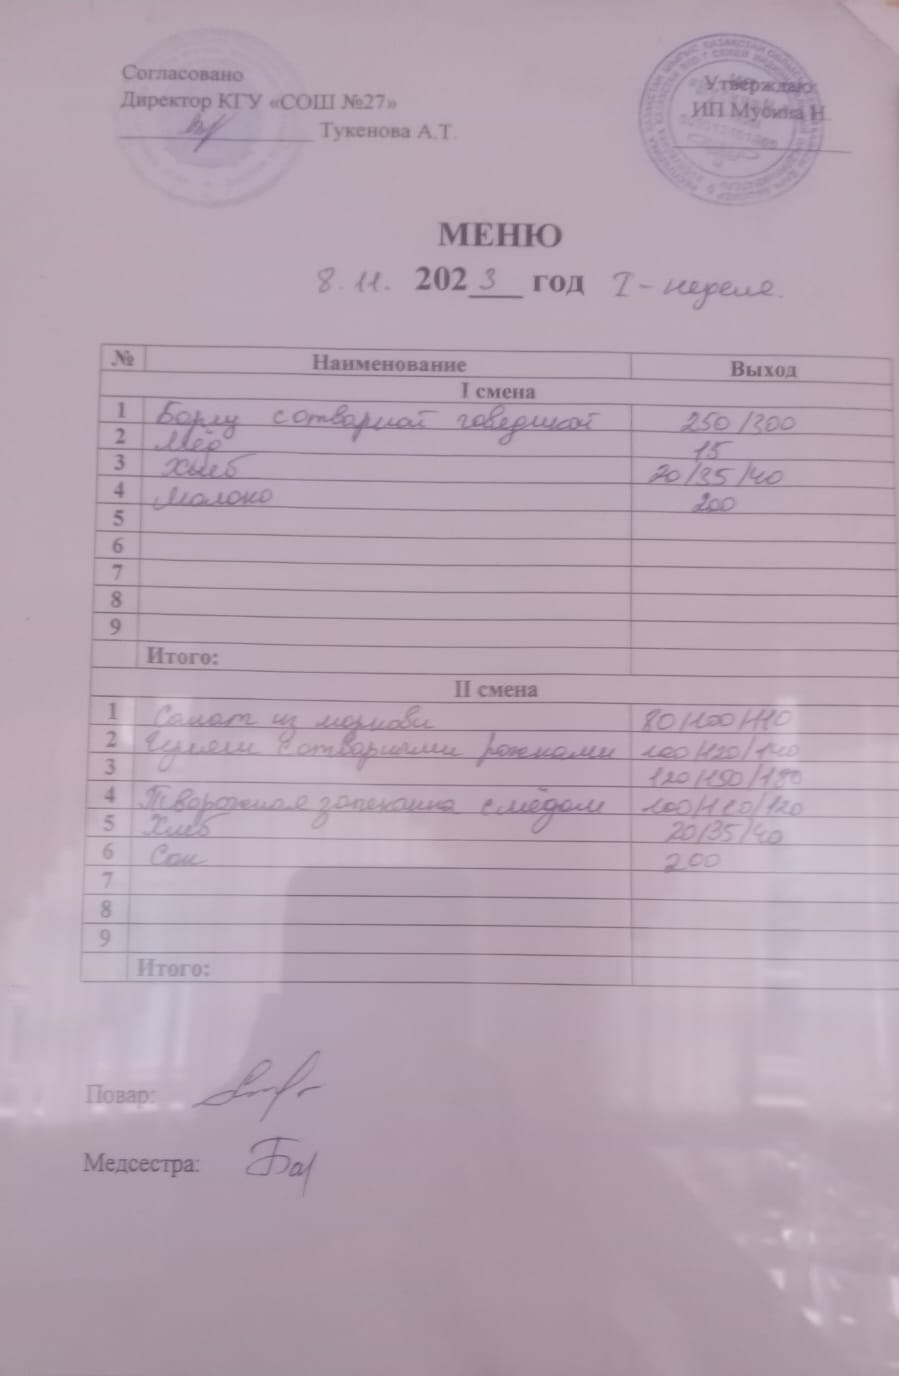 Согласовано
Утверждаю
Директор КГУ «СОШ №27»
ИП Мусина Н.
Тукенова А.Т.
МЕНЮ
8. 11. 2023 год I - неделя.
№ Наименование Выход
I смена
1 Борщ с отварной говядиной 250/300
2 Мёд 15
3 Хлеб 20/35/40
4 Молоко 200
5
6
7
8
9
Итого:
II смена
1 Салат из моркови 80/100/110
2 Гуляш с отварными рожками 100/120/140
3 120/150/180
4 Творожная запеканка с мёдом 100/110/120
5 Хлеб 20/35/40
6 Сок 200
7
8
9
Итого:
Повар:
Медсестра: